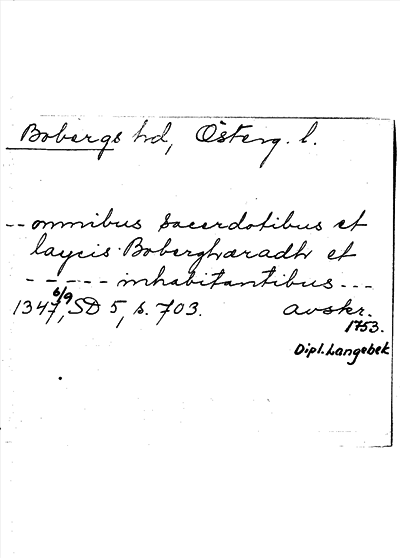 Bobergs hd, Österg. l.
-- omnibus sacerdotibus et
laycis Boberghæradh et
- - - - - inhabitantibus ---
1347 6/9, SD 5, s. 703. avskr.
1753.
Dipl. Langebek